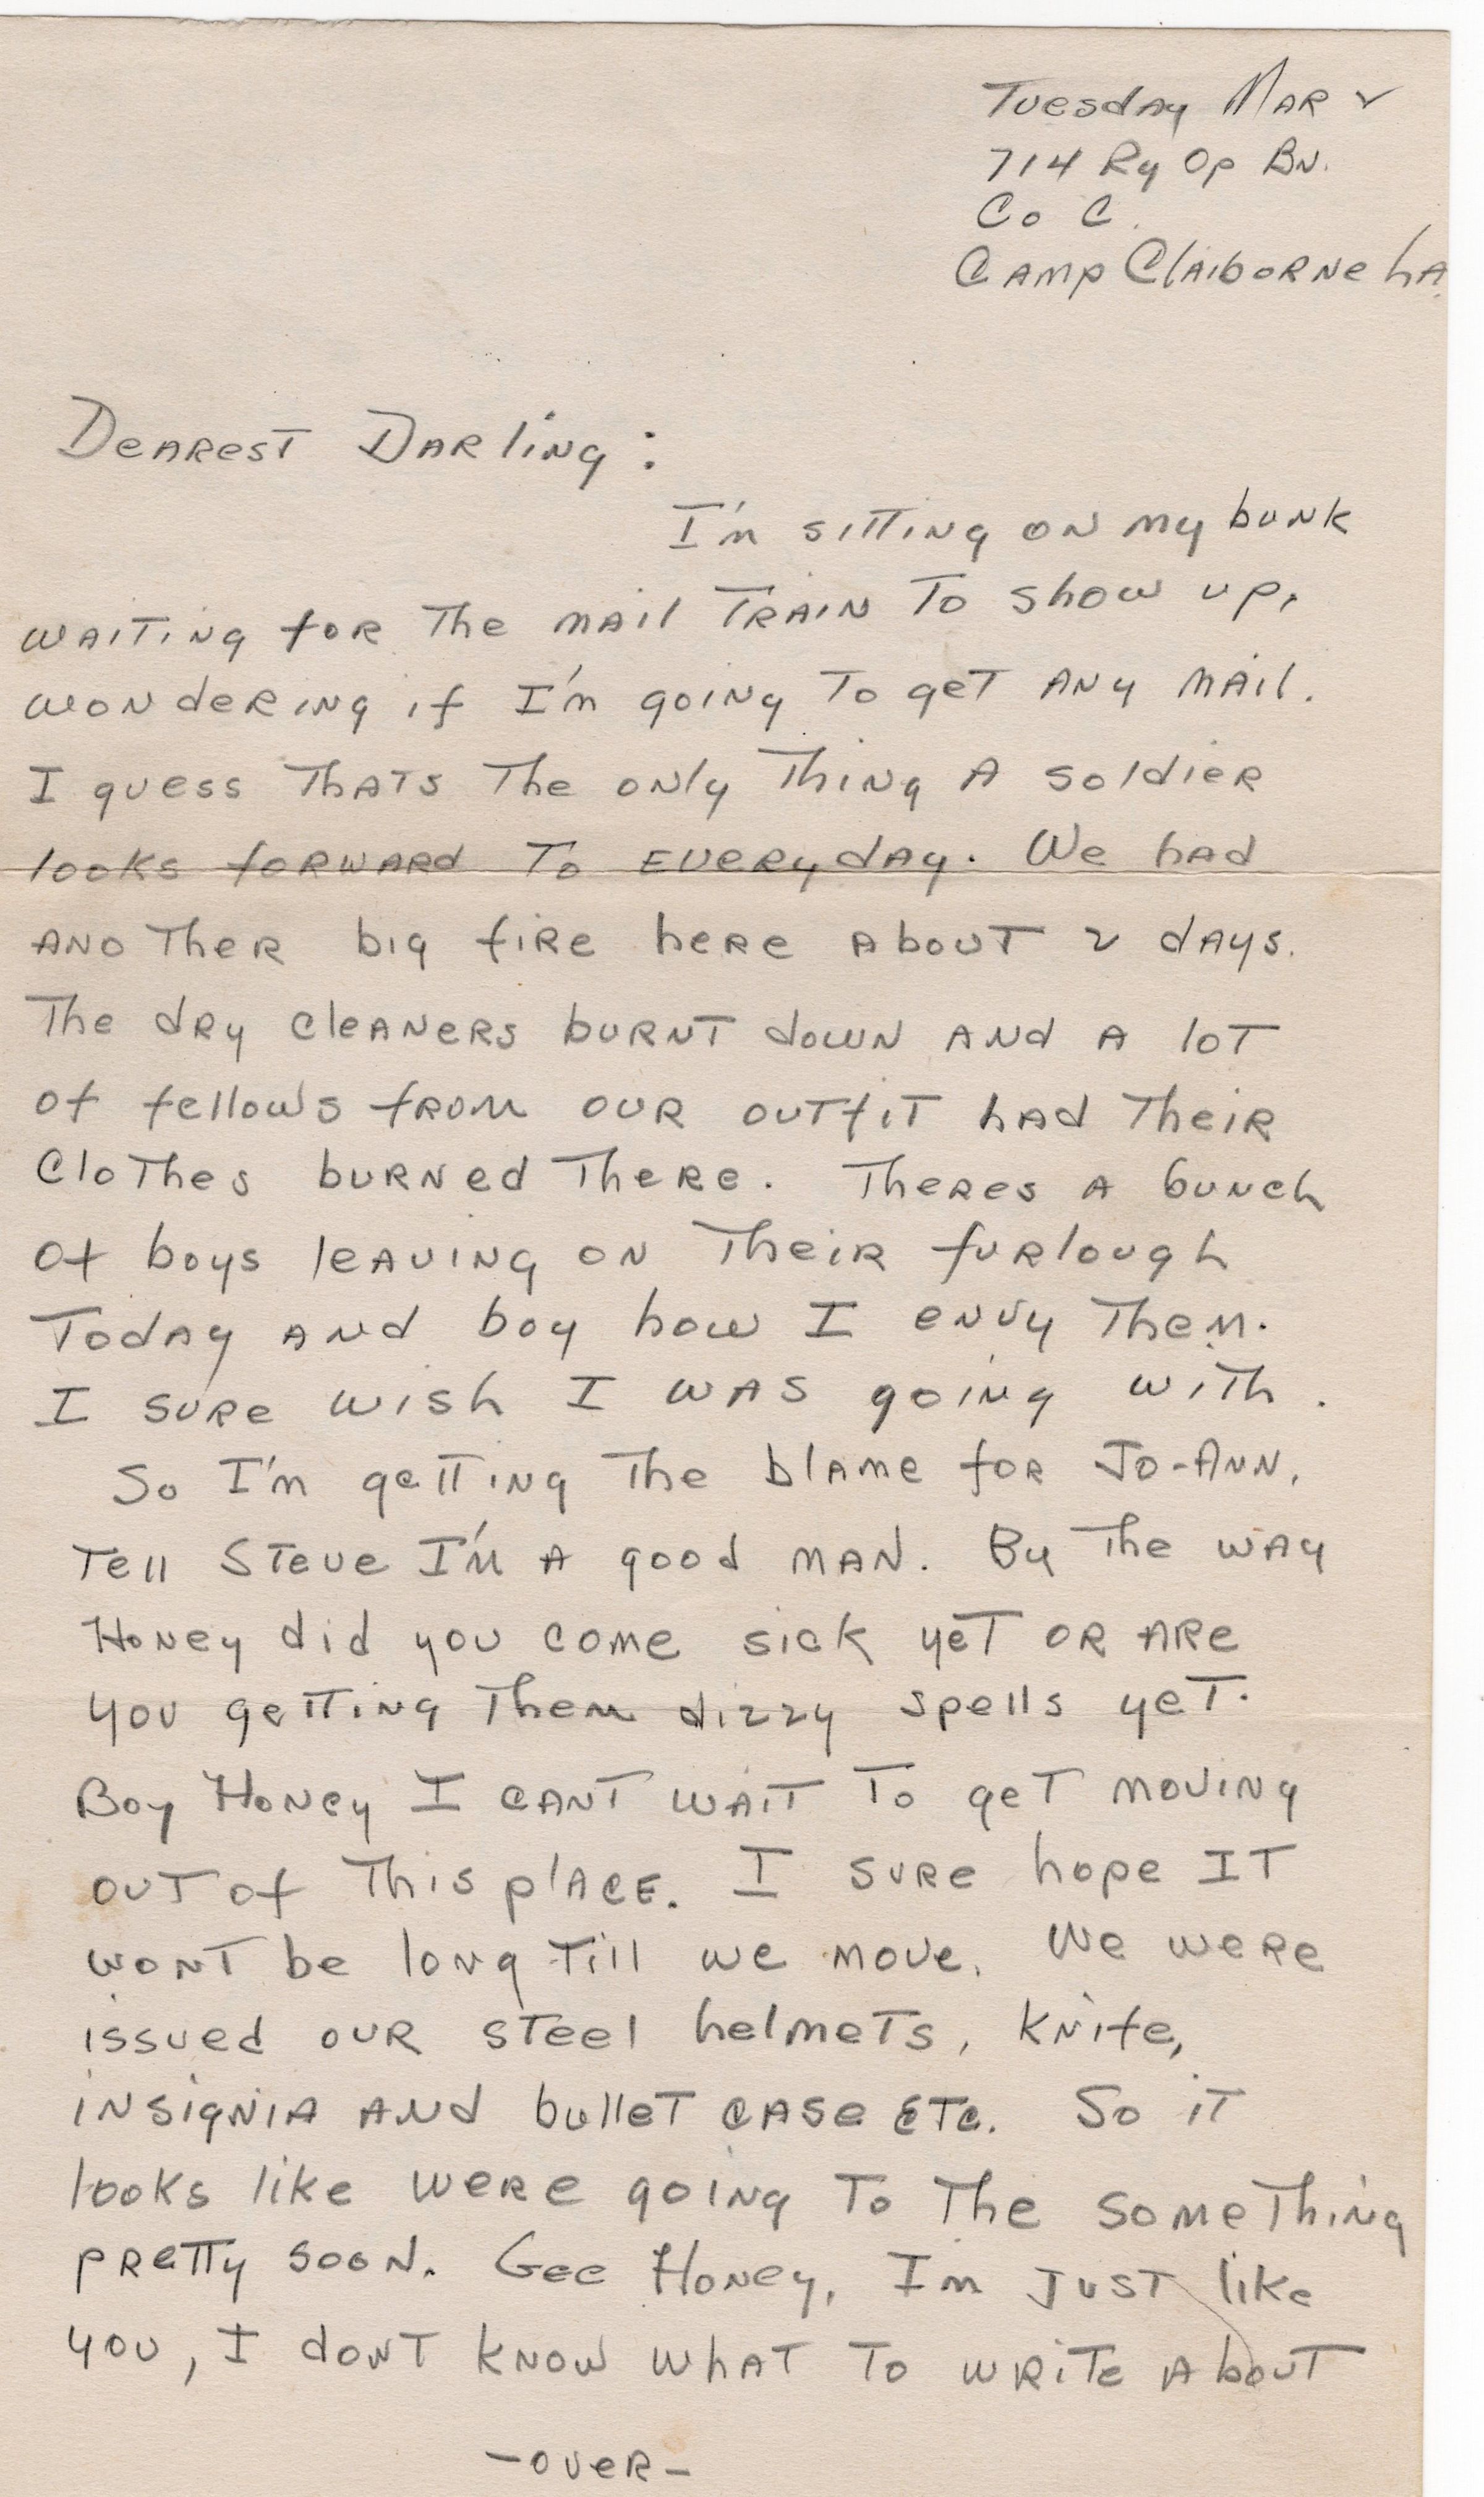 Tuesday Mar 2
714 Ry Op Bn.
Co C.
Camp Claiborne La.
Dearest Darling:
I'm sitting on my bunk
waiting for the mail train to show up,
wondering if I'm going to get any mail.
I guess thats the only thing a soldier
looks forward to everyday. We had
another big fire here about 2 days.
The dry cleaners burnt down and a lot
of fellows from our outfit had their
clothes burned there. Theres a bunch
of boys leaving on their furlough
today and boy how I envy them.
I sure wish I was going with.
So I'm getting the blame for Jo-Ann.
Tell Steve I'm a good man. By the way
Honey did you come sick yet or are
you getting them dizzy spells yet.
Boy Honey I cant wait to get moving
out of this place. I sure hope it
wont be long till we move. We were
issued our steel helmets, knife,
insignia and bullet case etc. So it
looks like were going to the something
pretty soon. Gee Honey, Im just like
you, I dont know what to write about
-over-